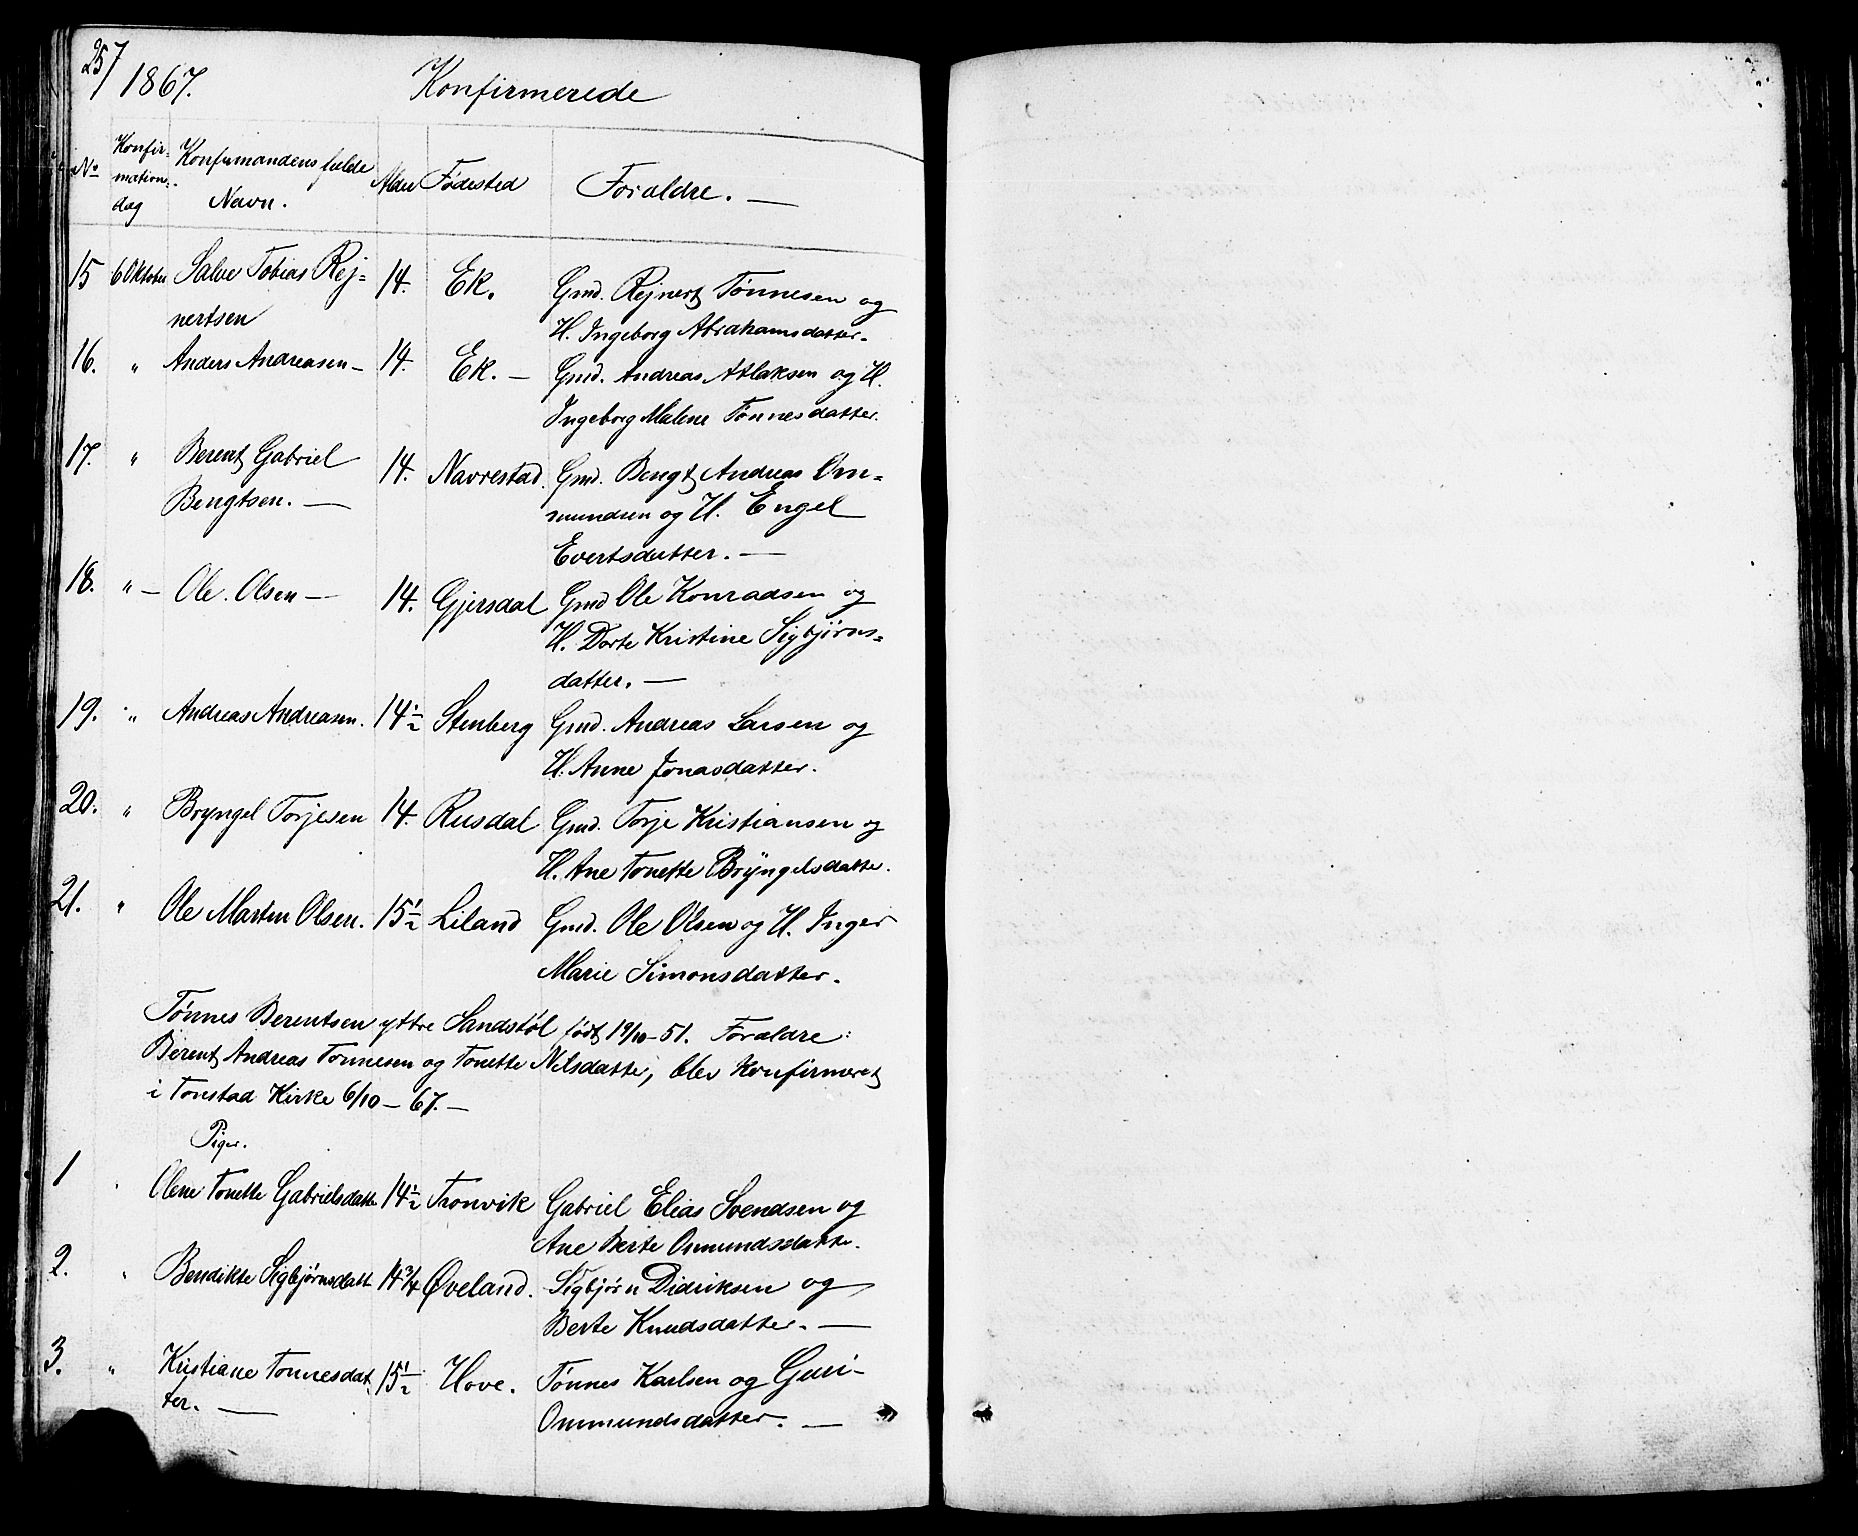 257
1867. Konfirmerede
No Konfir- Konfirmandens fulde Alder Fødested Foraldre. —
mations- Navn.
dag
15 6 Oktober Salve Tobias Rej= 14. Ek. Gmd. Rejnert Tønnesen og
nertsen H. Ingeborg Abrahamsdatter.
16. " Anders Andreasen — 14. Ek. — Gmd. Andreas Atlaksen og H.
Ingeborg Malene Tønnesdatter.
17. " Berent Gabriel 14. Navrestad. Gmd. Bengt Andreas Om=
Bengtsen. — mundsen og H. Engel
Evertsdatter. —
18. " — Ole. Olsen — 14. Gjersdal Gmd Ole Konradsen og
H. Dorte Kristine Sigbjørns=
datter. —
19. " Andreas Andreasen. 14½ Stenberg Gmd. Andreas Larsen og
H. Anne Jonasdatter.
20. " Bryngel Torjesen 14. Rusdal Gmd. Torje Kristiansen og
H. Ane Tonette Bryngelsdatter.
21. " Ole Marten Olsen. 15½ Liland Gmd. Ole Olsen og H. Inger
Marie Simonsdatter.
Tønnes Berentsen yttre Sandstøl født 19/10-51. Foraldre:
Berent Andreas Tønnesen og Tonette Nilsdatter, blev Konfirmeret
i Tonstad Kirke 6/10 — 67. —
Piger.
1 Olene Tonette Gabrielsdatter 14½ Tronvik Gabriel Elias Svendsen og
Ane Berte Ommundsdatter.
2. " Bendikte Sigbjørnsdatt 14¾ Øveland. Sigbjørn Didriksen og
Berte Knudsdatter. —
3. " Kristiane Tonnesdat 15½ Hove. Tønnes Karlsen og Guri
ter. — Ommundsdatter. —